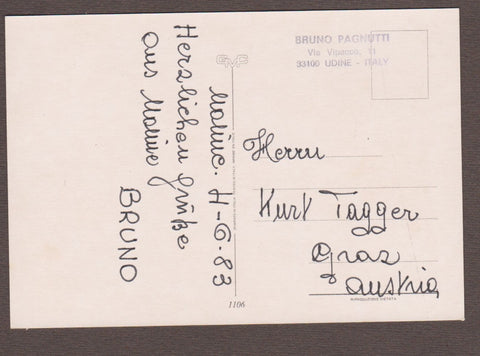 BRUNO PAGNUTTI
Via Vipacco, 11
33100 UDINE - ITALY
4-6-83
Herzlichen Grüße
aus
BRUNO
Herrn
Kurt Tagger
Graz
Austria
RIPRODUZIONE VIETATA
1106